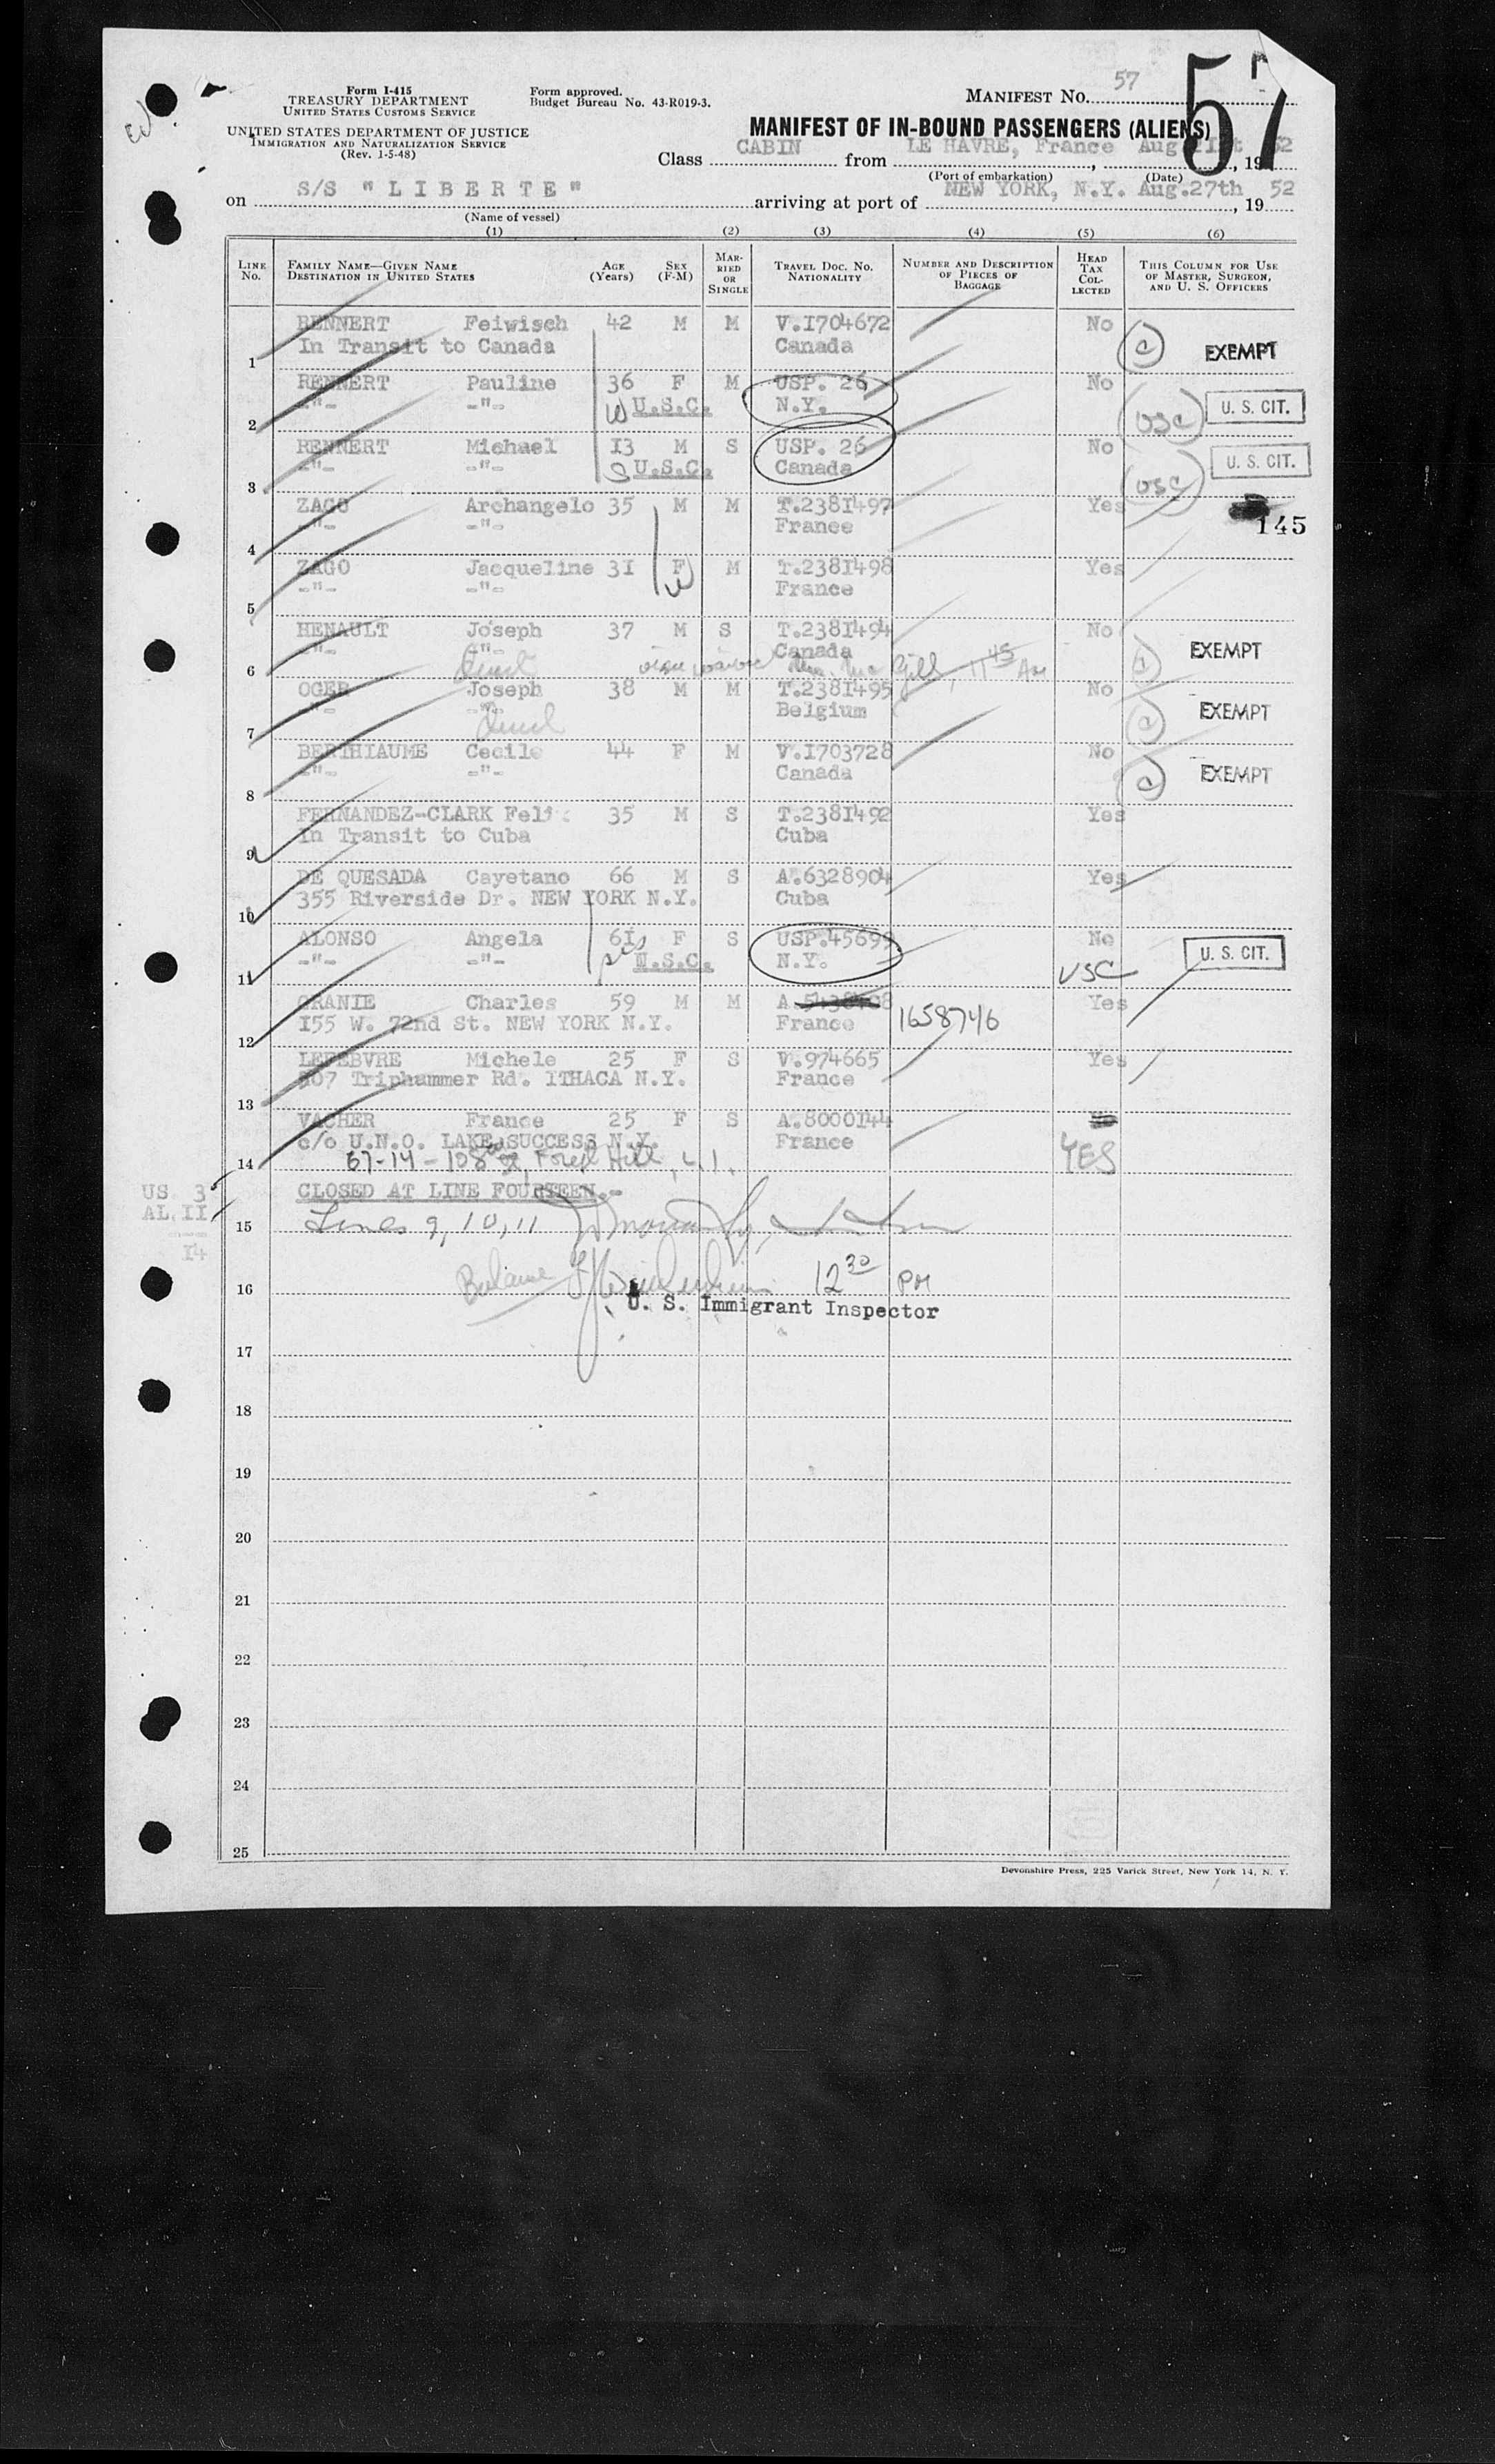 57
Form I-415
TREASURY DEPARTMENT
UNITED STATES CUSTOMS SERVICE
UNITED STATES DEPARTMENT OF JUSTICE
IMMIGRATION AND NATURALIZATION SERVICE
(Rev. 1-5-48)
Form approved.
Budget Bureau No. 43-R019-3.
MANIFEST NO. 57
MANIFEST OF IN-BOUND PASSENGERS (ALIENS)
Class CABIN from LE HAVRE, France Aug , 19 52
(Port of embarkation) (Date)
on S/S "LIBERTE" arriving at port of NEW YORK, N.Y. Aug.27th , 19 52
(Name of vessel)
(1) (2) (3) (4) (5) (6)
LINE No. FAMILY NAME—GIVEN NAME DESTINATION IN UNITED STATES AGE (Years) SEX (F-M) MARRIED OR SINGLE TRAVEL DOC. NO. NATIONALITY NUMBER AND DESCRIPTION OF PIECES OF BAGGAGE HEAD TAX COLLECTED THIS COLUMN FOR USE OF MASTER, SURGEON, AND U. S. OFFICERS
RENNERT Feiwisch 42 M M V.I704672 No
1 In Transit to Canada Canada EXEMPT
RENNERT Pauline 36 F M USP. 26 No
2 -"- -"- W U.S.C. N.Y. USC U. S. CIT.
RENNERT Michael I3 M S USP. 26 No
3 -"- -"- S U.S.C. Canada USC U. S. CIT.
ZAGO Archangelo 35 M M T.238I497 Yes
4 -"- -"- France 145
ZAGO Jacqueline 3I F M T.238I498 Yes
5 -"- -"- W France
HENAULT Joseph 37 M S T.238I494 No
6 -"- -"- Canada EXEMPT
11 45 AM
OGER Joseph 38 M M T.238I495 No
7 -"- -"- Belgium EXEMPT
BERTHIAUME Cecile 44 F M V.I703728 No
8 -"- -"- Canada EXEMPT
FERNANDEZ-CLARK 35 M S T.238I492 Yes
9 In Transit to Cuba Cuba
DE QUESADA Cayetano 66 M S A.6328904 Yes
10 355 Riverside Dr. NEW YORK N.Y. Cuba
ALONSO Angela 6I F S USP.45699 No
11 -"- -"- U.S.C. N.Y. USC U. S. CIT.
GRANIE Charles 59 M M A. Yes
12 I55 W. 72nd St. NEW YORK N.Y. France 1658746
LEFEBVRE Michele 25 F S V.974665 Yes
13 907 Triphammer Rd. ITHACA N.Y. France
VACHER France 25 F S A.8000I44
c/o U.N.O. LAKE SUCCESS N.Y. France
14 67-14-108 St, Forest Hills, L.I. YES
US 3
AL.II
I4
CLOSED AT LINE FOURTEEN.-
15 Lines 9, 10, 11
16 Balance 12 30 PM
U. S. Immigrant Inspector
17
18
19
20
21
22
23
24
25
Devonshire Press, 225 Varick Street, New York 14, N. Y.